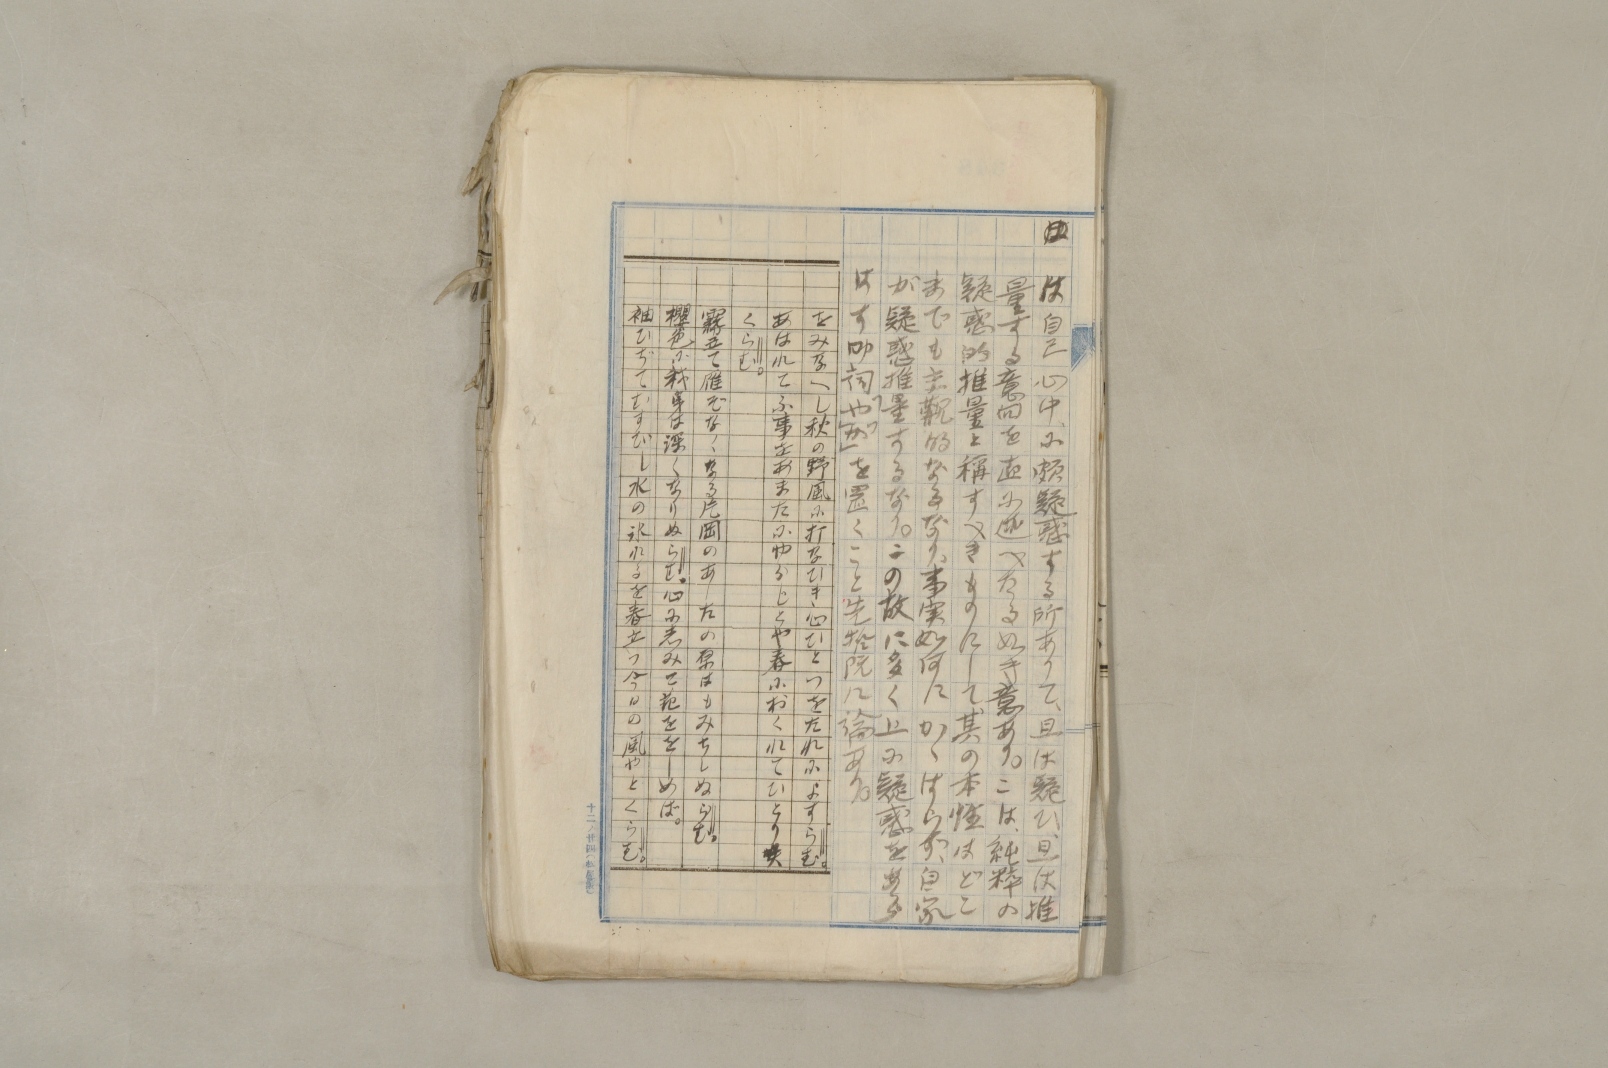 は自己心中に頗疑惑する所ありて、且は疑ひ、且は推
量する意向を直に述べたる如き意あり。こは、純粋の
疑惑的推量と称すべきものにして、其の本性はどこ
までも主観的なるなり。事実如何にかゝはらず、自家
が疑惑推量するなり。この故に多く上に疑惑をあら
はす助詞「や」「か」を置くこと先哲既に論あり。
をみなへし秋の野風に打なびき心ひとつをたれによすらむ。
あはれてふ事をあまたにやらじとや春におくれてひとり咲
くらむ。
霧立て雁ぞなくなる片岡のあしたの原はもみちしぬらむ。
櫻色に我身は深くなりぬらむ。心にしみて花ををしめば。
袖ひぢてむすびし水の氷れるを春立つ今日の風やとくらむ。